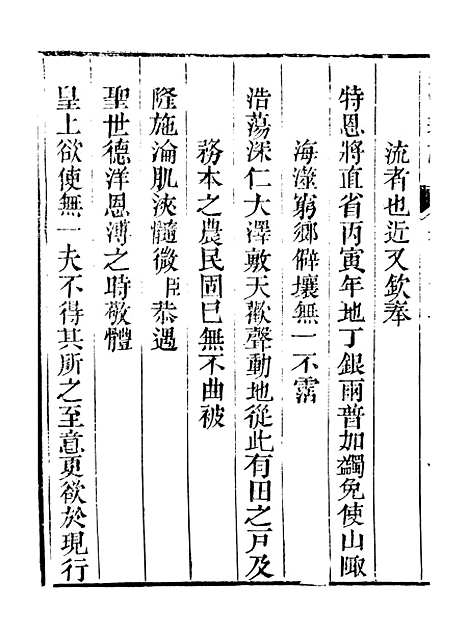 流者也近又欽奉
特恩將直省丙寅年地丁銀兩普加蠲免使山陬
海澨窮鄉僻壤無一不霑
浩蕩深仁大澤敷天歡聲動地從此有田之戸及
務本之農民固已無不曲被
隆施淪肌浹髓微臣恭遇
聖世德洋恩溥之時敬體
皇上欲使無一夫不得其所之至意更欲於現行